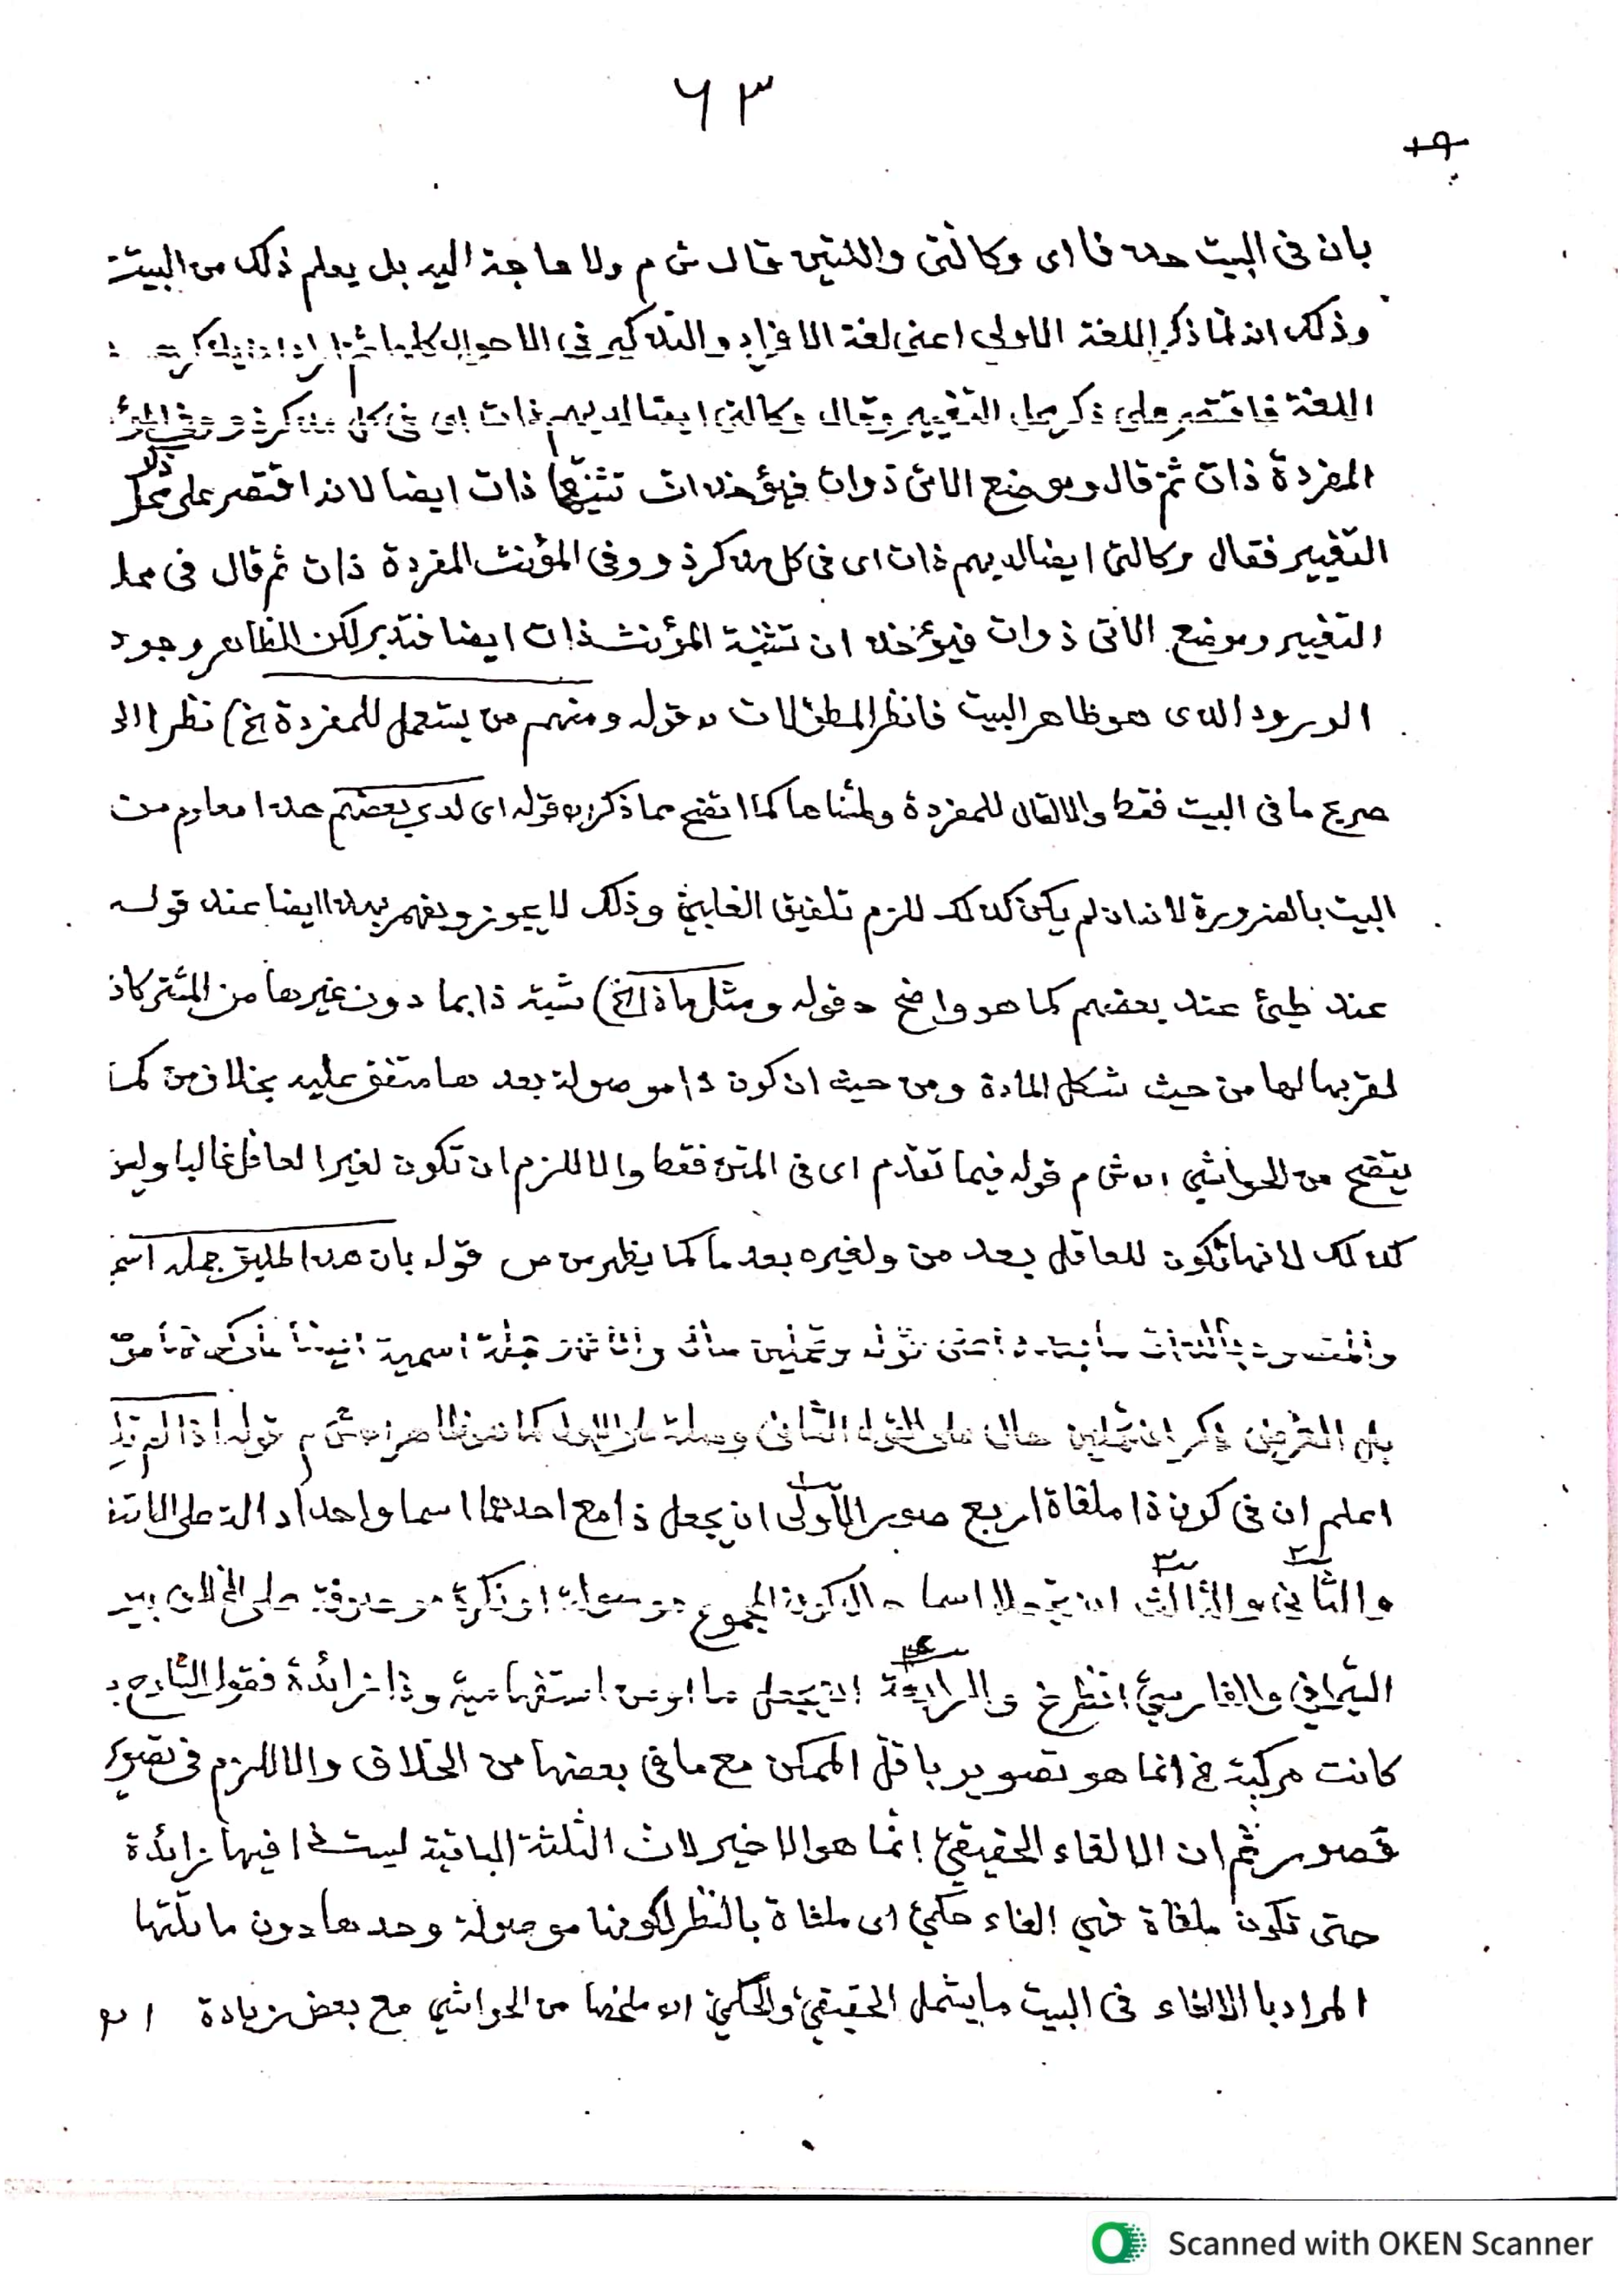 ٦٣
١٩
بان فى البيت حذفا اى وكالتى واللتين قال ش م ولا حاجة اليه بل يعلم ذلك من البيت
وذلك انه لما ذكر اللغة الاولى اعنى لغة الافراد والتذكير فى الاحوال كلها
اللغة فاقتصر على ذكر محل التغيير وقال وكالتى ايضا لديهم ذات اى فى كل مذكر ذو وفى المؤنث
المفردة ذات ثم قال وموضع الاتى ذوات فيؤخذ ان تثنيتها ذات ايضا لانه اقتصر على محل
التغيير فقال وكالتى ايضا لديهم ذات اى فى كل مذكر ذو وفى المؤنث المفردة ذات ثم قال فى محل
التغيير وموضع الاتى ذوات فيؤخذ ان تثنية المؤنث ذات ايضا فتدبر لكن الظاهر وجود
الورود الذى هو ظاهر البيت فانظر المطولات قوله ومنهم من يستعمل للمفردة الخ) نظرا الى
صريح ما فى البيت فقط والا لقال للمفردة ولمثناها كما اتضح مما ذكر اه قوله اى لدى بعضهم هذا معلوم من
البيت بالضرورة لانه ان لم يكن كذلك للزم تلفيق وذلك لا يجوز ويفهم بهذا ايضا عند قوله
عند طيئ عند بعضهم كما هو واضح قوله ومثل ماذا الخ) شبه ذا بما دون غيرها من
لقربها لها من حيث شكل المادة ومن حيث ان كون ذا موصولة بعدها متفق عليه بخلاف من كما
يتضح من الحواشي اه ش م قوله فيما تقدم اى فى المتن فقط والا للزم ان تكون لغير العاقل غالبا وليس
كذلك لانها تكون للعاقل بعد من ولغيره بعد ما كما يظهر من ص قوله بان هذا طليق جملة اسم
قوله وتحملين حال جملة اسمية
بل الغرض ذكر ان تحملين حال على القول الثانى وصلة على الاول كما هو ظاهر اه ش م قوله اذا لم تلغ
اعلم ان فى كون ذا ملغاة اربع صور الاولى ان يجعل ذا مع احدهما اسما واحدا دالة على
والثانى والثالث ان يجعلا اسما المجموع موصولة او نكرة موصوفة على الخلاف بين
السيرافي والفارسي انظر خ والرابعة ان يجعل ما او من استفهامية وذا زائدة فقول الشارح
كانت مركبة خ انما هو تصوير باقل الممكن مع ما فى بعضها من الخلاف والا للزم فى تصوير
قصور ثم ان الالغاء الحقيقي انما هو الاخير لان الثلثة الباقية ليست ذا فيها زائدة
حتى تكون ملغاة فهي الغاء حكمي اى ملغاة بالنظر لكونها موصولة وحدها دون ما
المراد بالالغاء فى البيت ما يشمل الحقيقي والحكمي اه ملخصا من الحواشي مع بعض زيادة اه
Scanned with OKEN Scanner